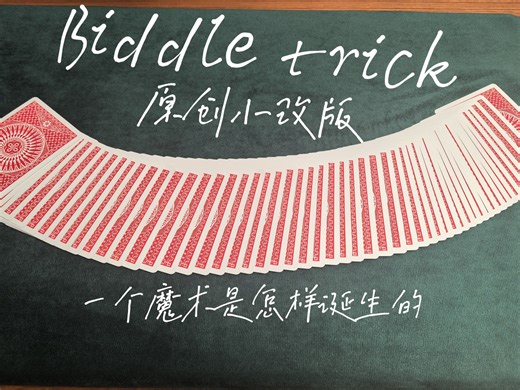 Biddle trick
原创小改版
一个魔术是怎样诞生的